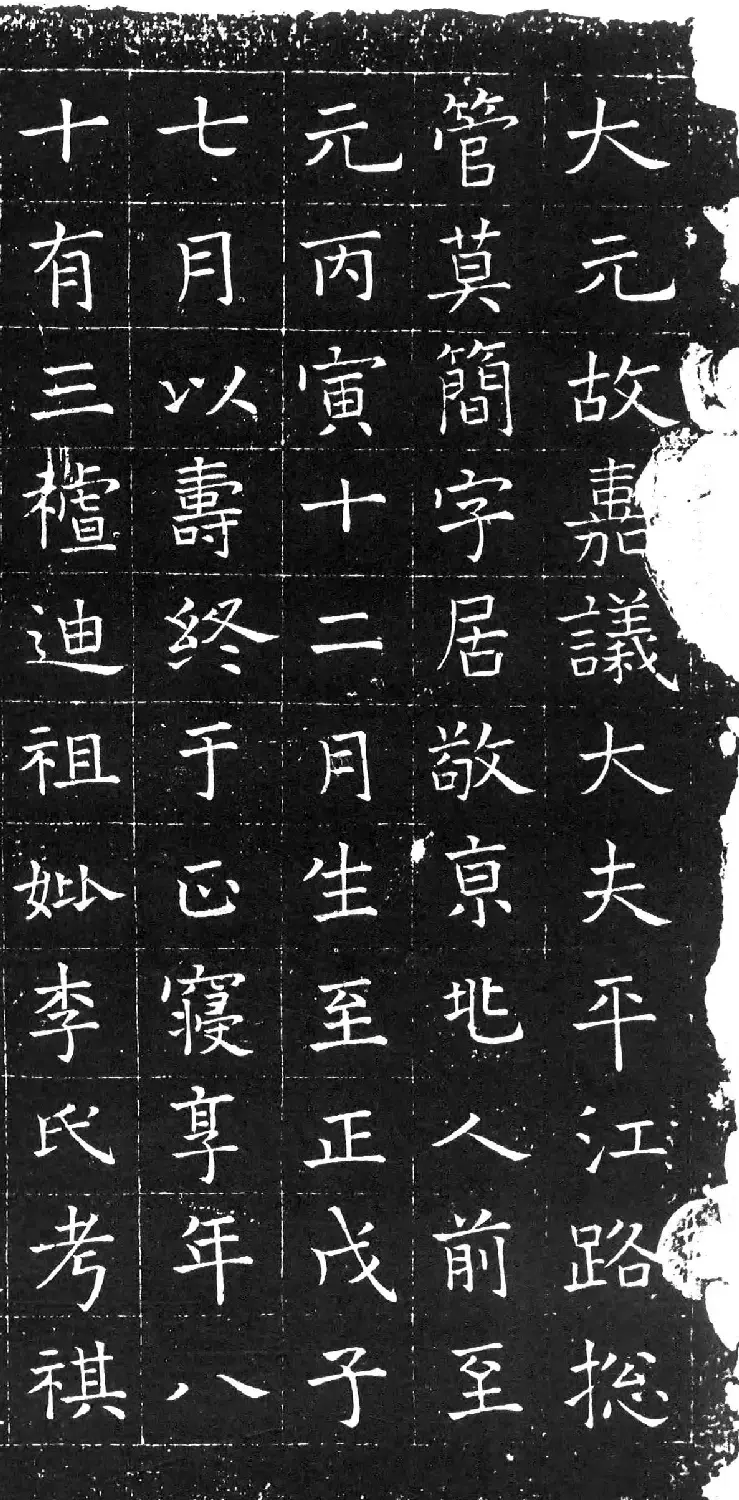 大元故嘉議大夫平江路捴
管莫簡字居敬京地人前至
元丙寅十二月生至正戊子
七月以壽終于正寢享年八
十有三禃迪祖妣李氏考祺